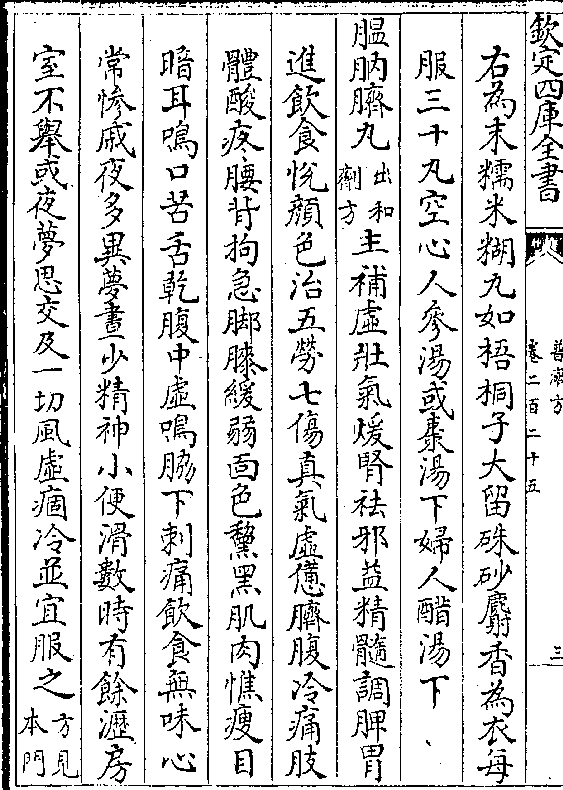 欽定四庫全書
普濟方
卷二百二十五
三
右為末糯米糊丸如梧桐子大留硃砂麝香為衣每
服三十丸空心人參湯或棗湯下婦人醋湯下
膃肭臍丸出和劑方主補虛壯氣煖腎祛邪益精髓調脾胃
進飲食悅顔色治五勞七傷真氣虛憊臍腹冷痛肢
體酸疼腰背拘急脚膝緩弱面色黧黑肌肉憔瘦目
暗耳鳴口苦舌乾腹中虛鳴脇下刺痛飲食無味心
常慘戚夜多異夢晝少精神小便滑數時有餘瀝房
室不舉或夜夢思交及一切風虛痼冷並宜服之方見本門